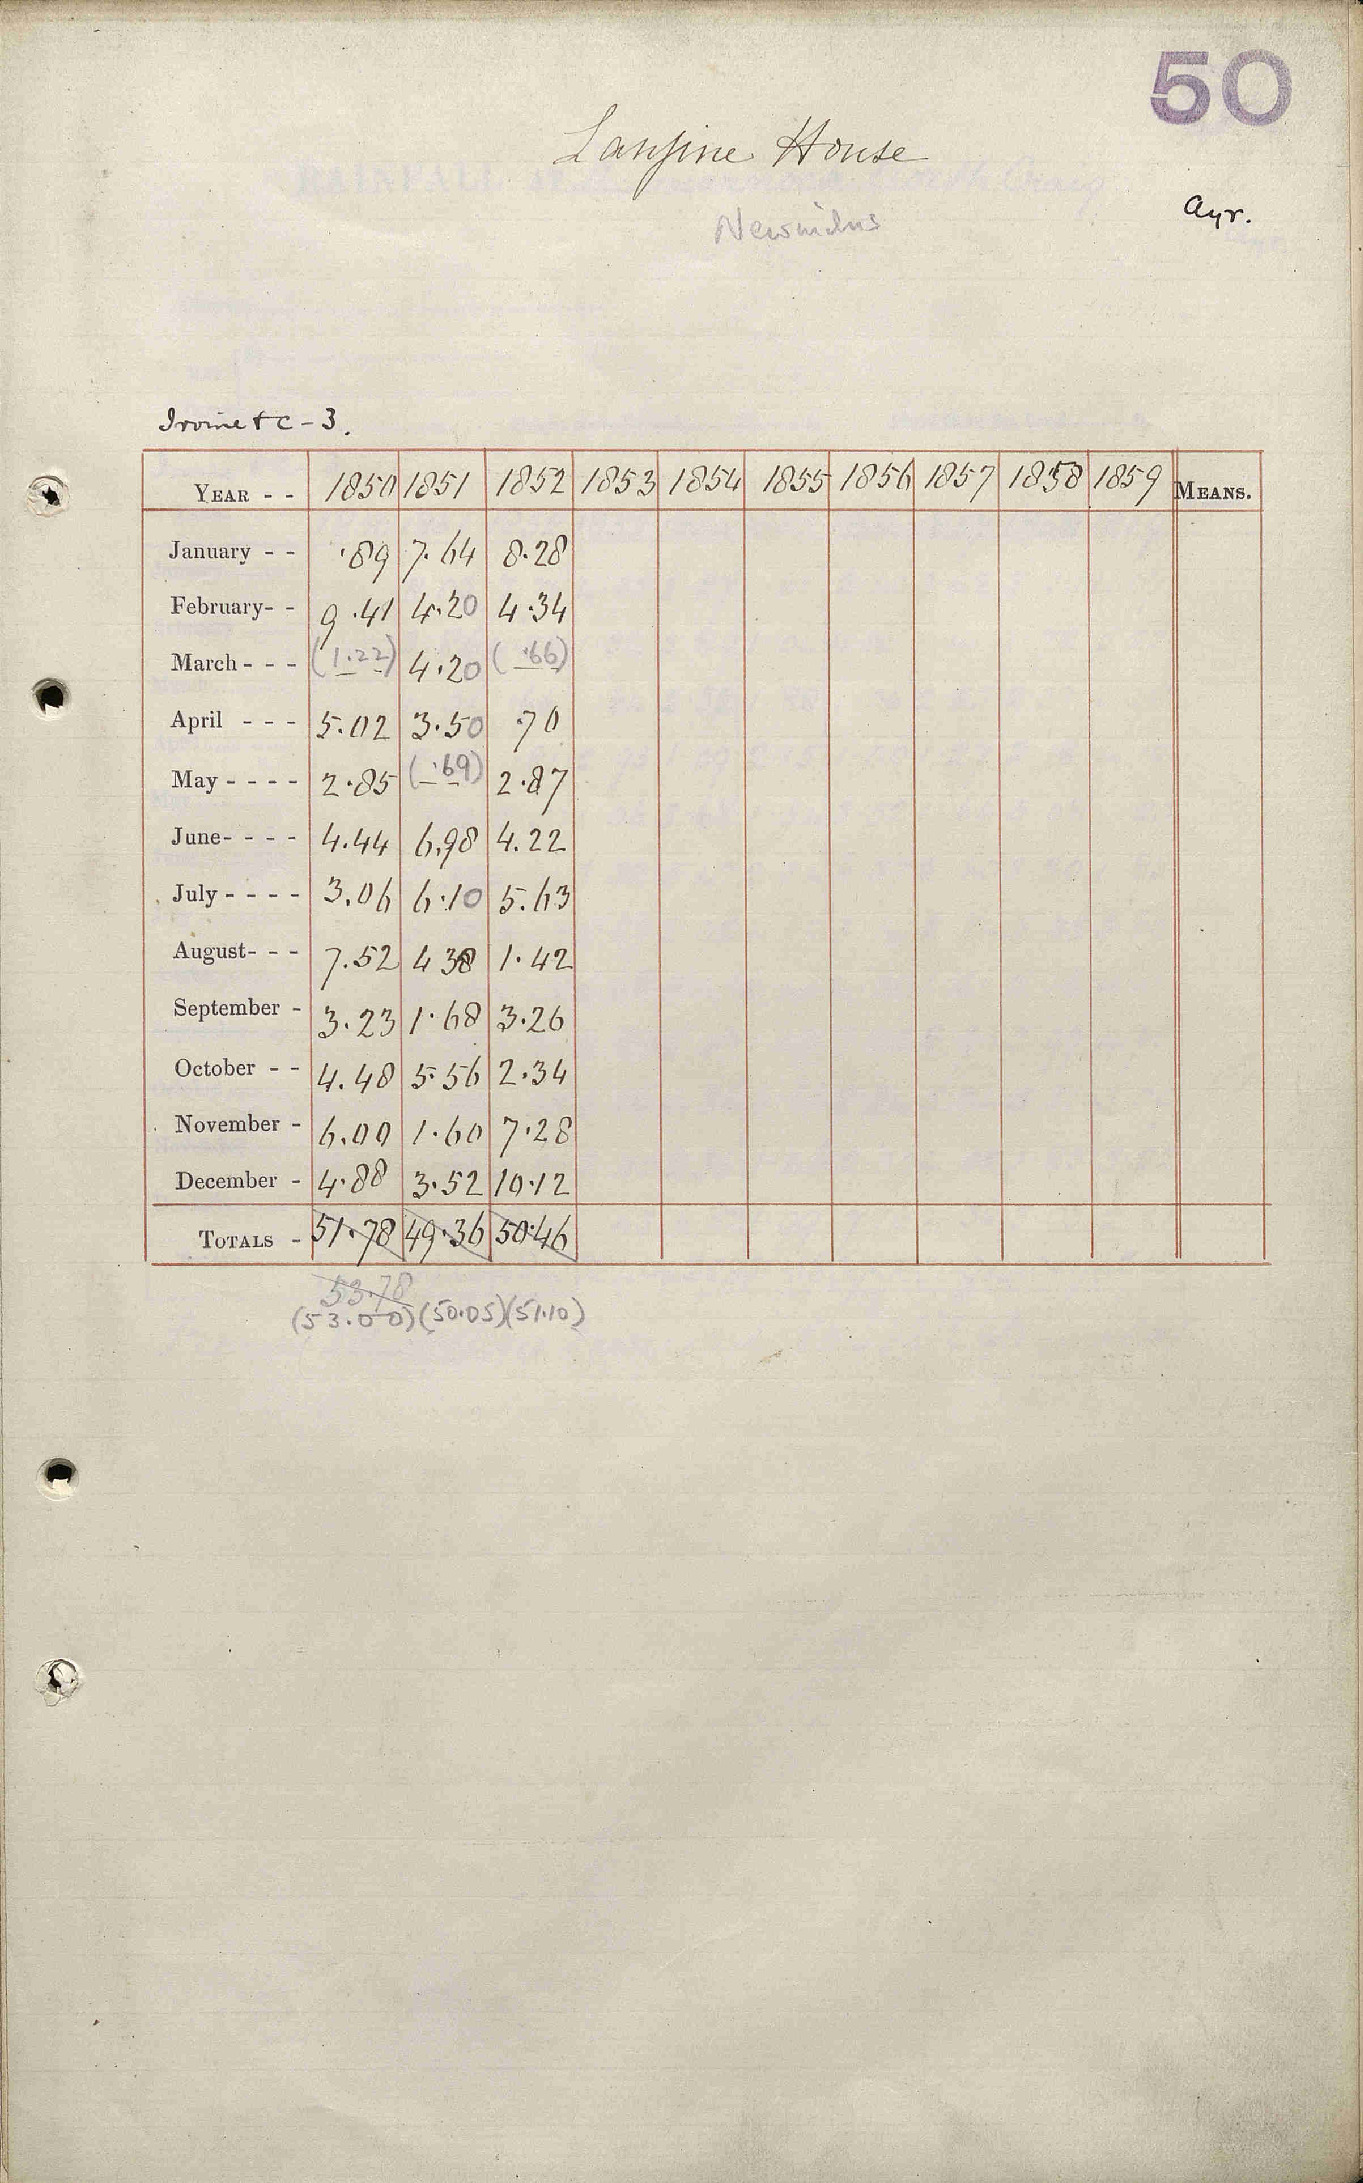 50
Lanfine House
Newmilns
Ayr.
Irvine & C - 3.
YEAR - - 1850 1851 1852 1853 1854 1855 1856 1857 1858 1859 MEANS.
January - - .89 7.64 8.28
February- - 9.41 4.20 4.34
March - - - (1.22) 4.20 (.66)
April - - - 5.02 3.50 .70
May - - - - 2.85 (.69) 2.87
June- - - - 4.44 6.98 4.22
July - - - - 3.06 6.10 5.63
August- - - 7.52 4 38 1.42
September - 3.23 1.68 3.26
October - - 4.48 5.56 2.34
November - 6.00 1.60 7.28
December - 4.88 3.52 10.12
TOTALS - 51.78 49.36 50.46
53.78
(53.00) (50.05) (51.10)